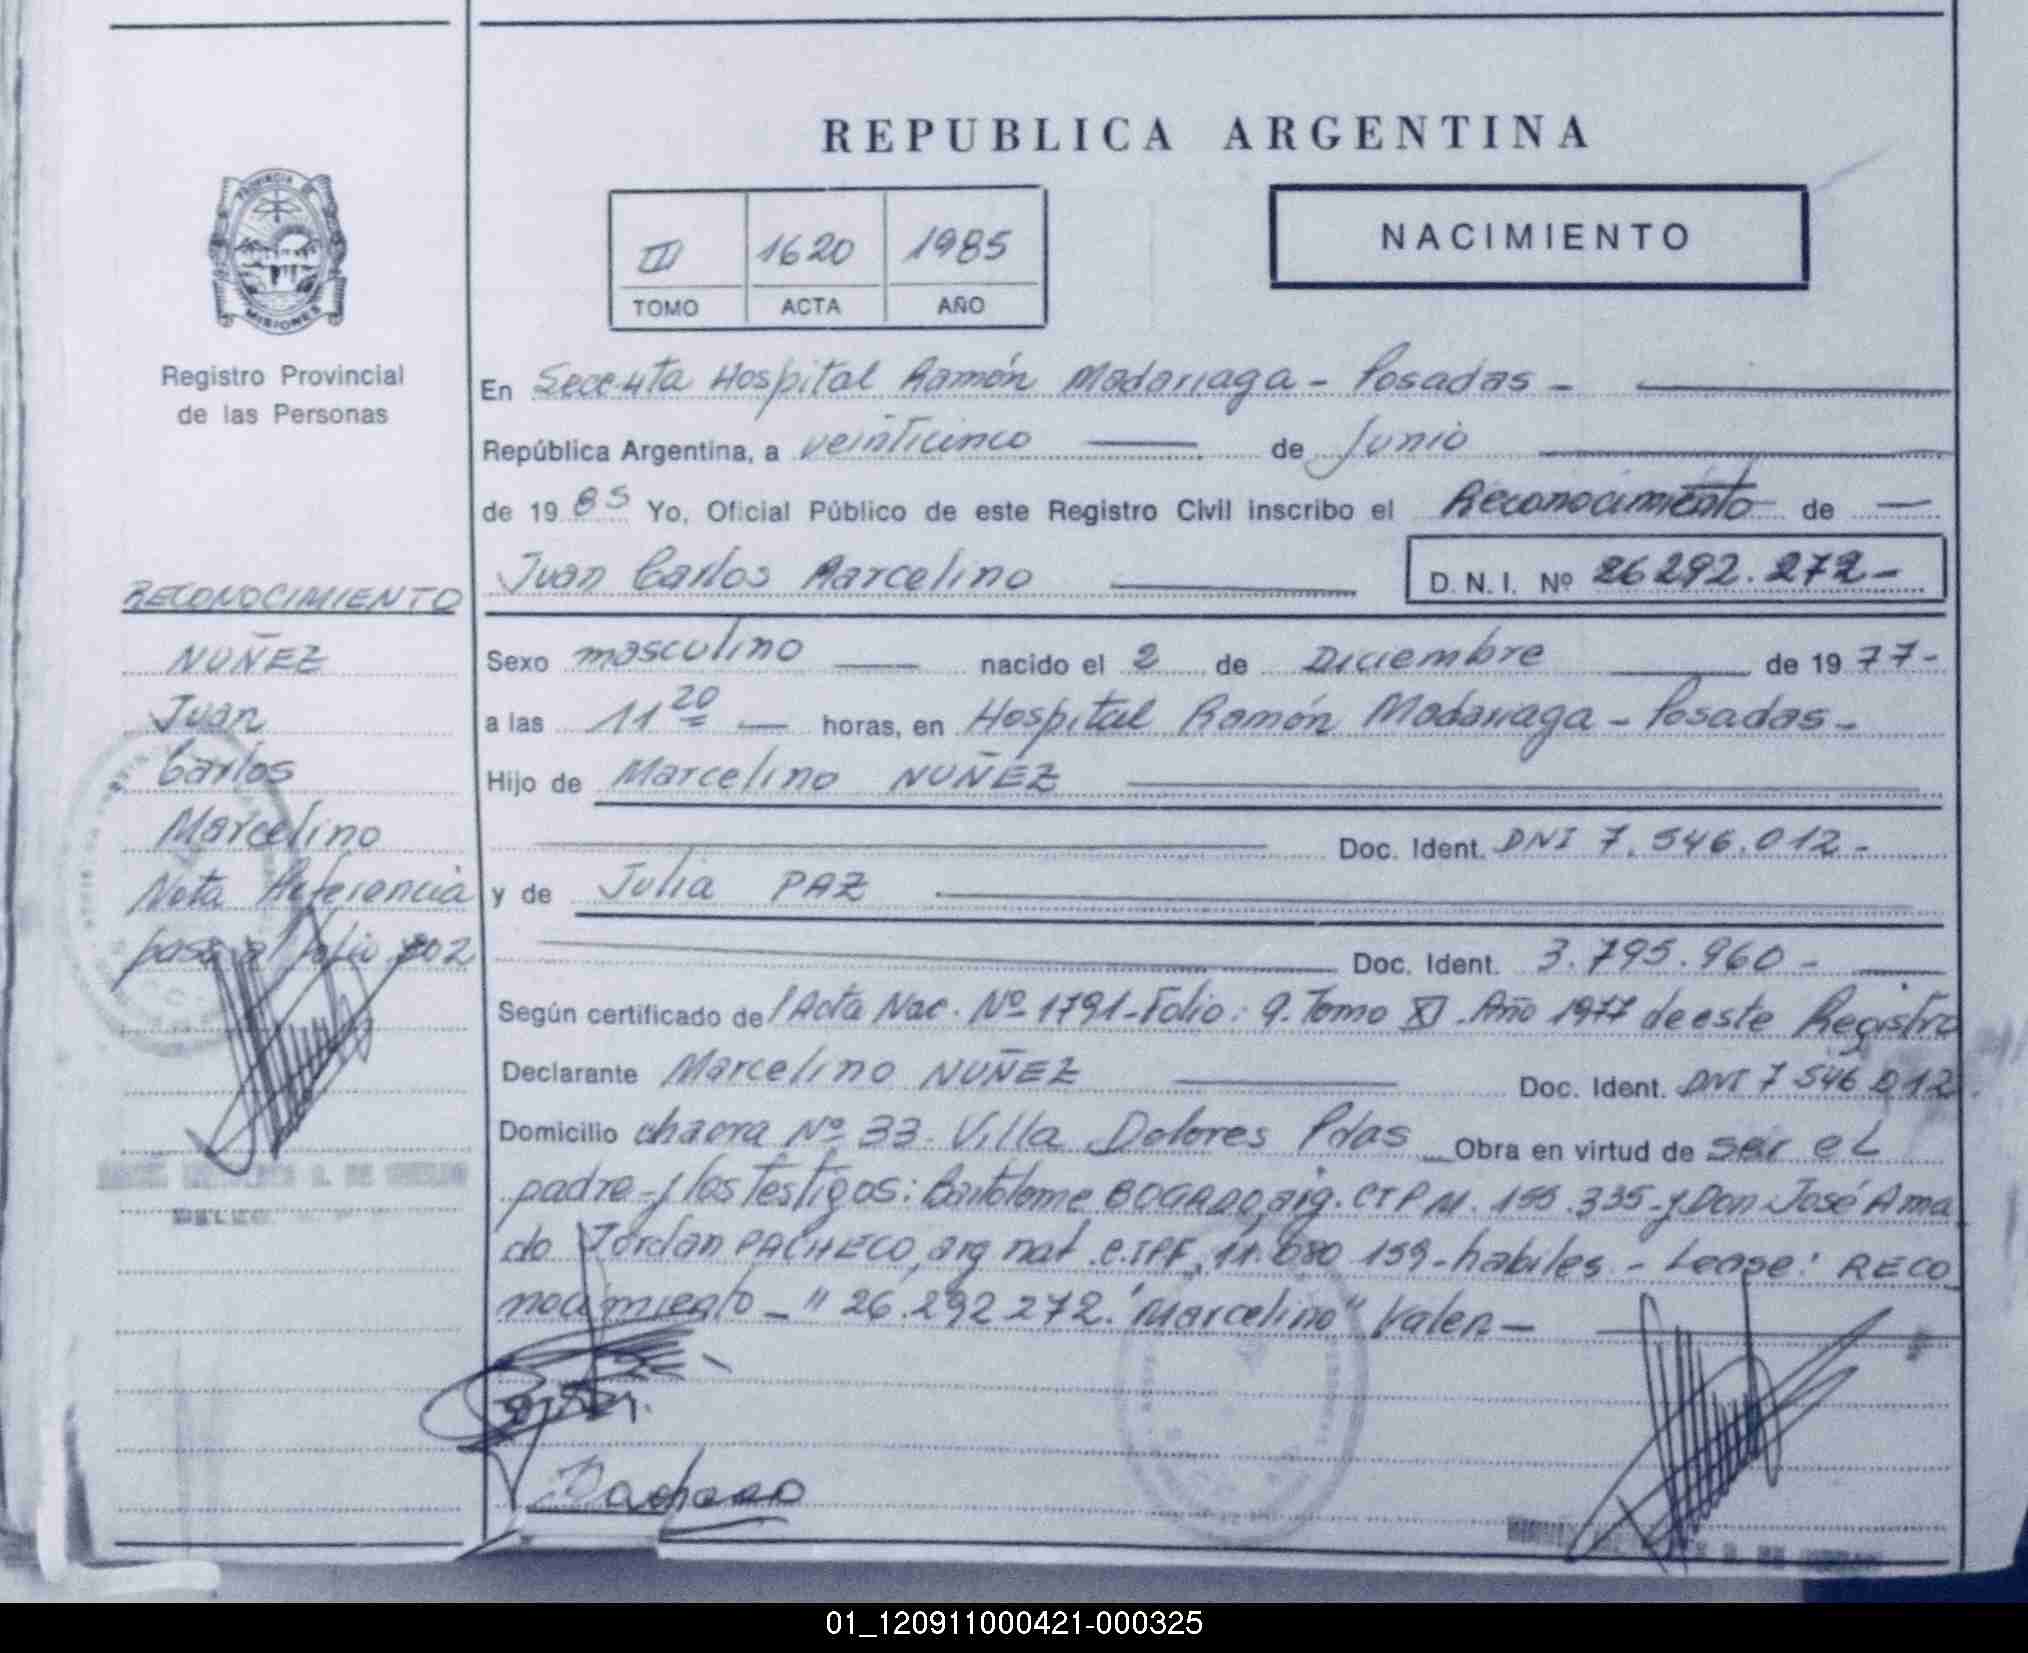 REPUBLICA ARGENTINA
PROVINCIA
MISIONES
Registro Provincial
de las Personas
1620 1985
TOMO ACTA AÑO
NACIMIENTO
En Hospital Ramón Madariaga - Posadas -
República Argentina, a veinticinco de Junio
de 19 85 Yo, Oficial Público de este Registro Civil inscribo el Reconocimiento de —
Juan Carlos Marcelino D. N. I. Nº 26292.272-
Sexo masculino nacido el 2 de Diciembre de 19 77-
a las 11 20 horas, en Hospital Ramón Madariaga - Posadas -
Hijo de Marcelino NUÑEZ
Doc. Ident. DNI 7.546.012-
y de Julia PAZ
Doc. Ident. 3.795.960-
Según certificado de Acta Nac. Nº 1791-Folio: 9. Tomo XI. Año 1977 de este Registro
Declarante Marcelino NUÑEZ Doc. Ident. DNI 7 546 012
Domicilio chacra Nº 33- Villa Dolores Pdas Obra en virtud de ser el
padre-y los testigos: Bartolome BOGADO, arg. 155.335-y Don José Ama
do Jordan PACHECO, arg nat 11.080 159-habiles - Lease: RECO
nocimiento-"26.292 272."Marcelino" Valen-
Pacheco
RECONOCIMIENTO
NUÑEZ
Juan
Carlos
Marcelino
Nota Referencia
pasa al folio 202
01_120911000421-000325